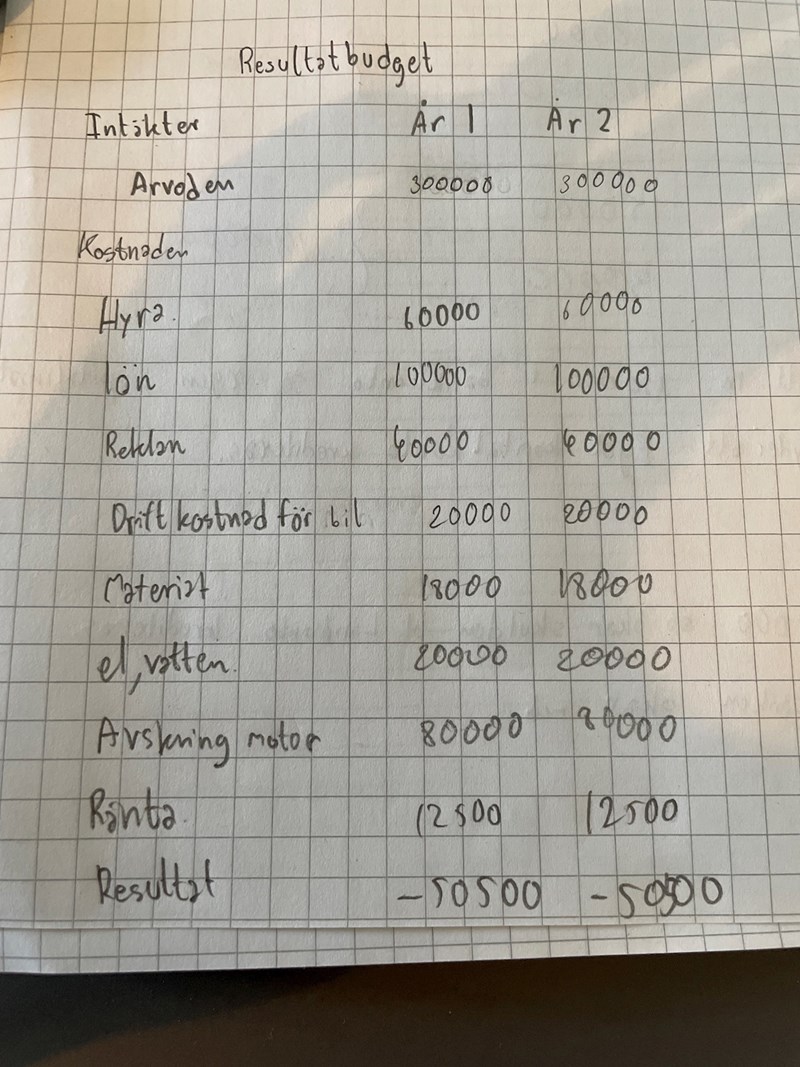 Resultatbudget
Intäkter År 1 År 2
Arvoden 300000 300000
Kostnaden
Hyra. 60000 60000
lön 100000 100000
Reklan 40000 40000
Drift kostnad för bil 20000 20000
Material 18000 18000
el, vatten. 20000 20000
Avskrning motor 80000 80000
Ränta. 12500 12500
Resultat -50500 -50500